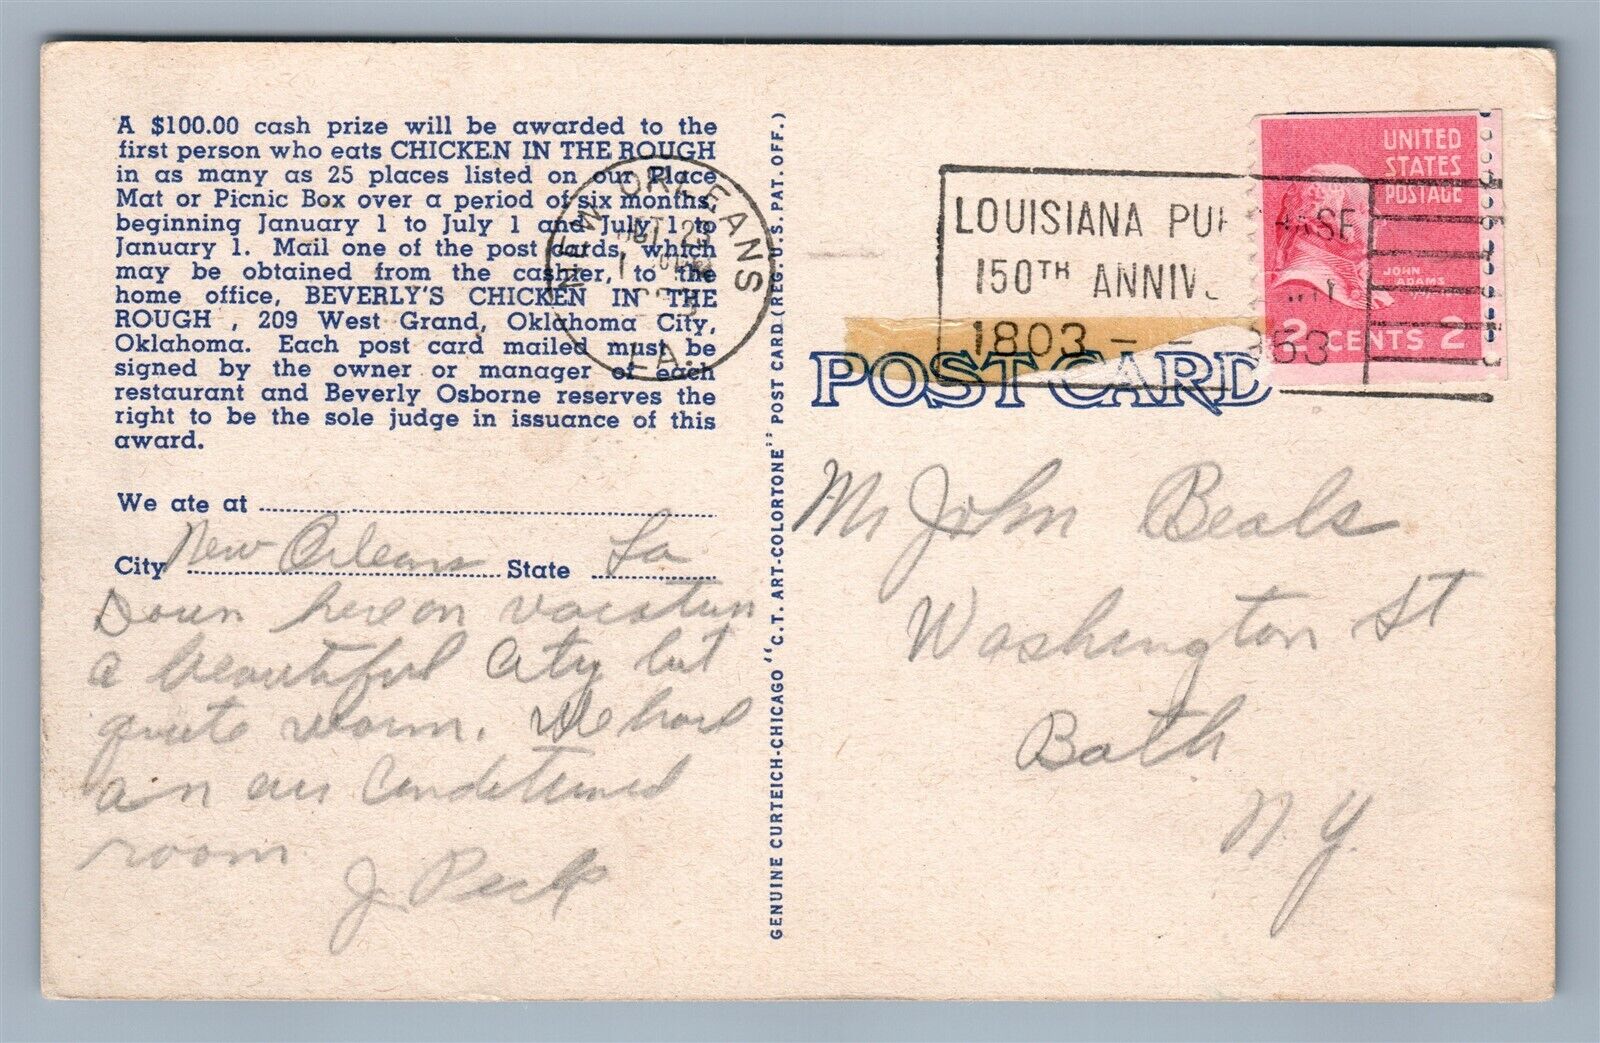 A $100.00 cash prize will be awarded to the
first person who eats CHICKEN IN THE ROUGH
in as many as 25 places listed on our Place
Mat or Picnic Box over a period of six months,
beginning January 1 to July 1 and July 1 to
January 1. Mail one of the post cards, which
may be obtained from the cashier, to the
home office, BEVERLY'S CHICKEN IN THE
ROUGH , 209 West Grand, Oklahoma City,
Oklahoma. Each post card mailed must be
signed by the owner or manager of each
restaurant and Beverly Osborne reserves the
right to be the sole judge in issuance of this
award.
We ate at
City New Orleans State La
Down here on vacation
a beautiful City but
quite warm. We have
an air Conditioned
room.
J. Peck
GENUINE CURTEICH-CHICAGO "C.T. ART-COLORTONE" POST CARD (REG. U.S. PAT. OFF.)
NEW ORLEANS
LA.
LOUISIANA PURCHASE
150TH ANNIV
1803 - 53
UNITED
STATES
POSTAGE
JOHN
ADAMS
2 CENTS 2
POST CARD
Mr John Beals
Washington St
Bath
N.Y.